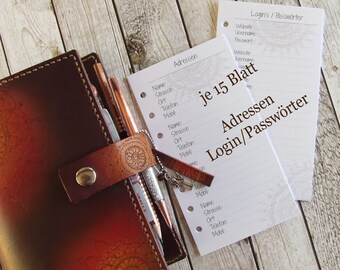 Logins / Passwörter
Website
Username
Passwort
Website
Username
Passwort
Adressen
Name
Strasse
Ort
Telefon
Mobil
Name
Strasse
Ort
Telefon
Mobil
Name
Strasse
Ort
Telefon
Mobil
je 15 Blatt
Adressen
Login/Passwörter